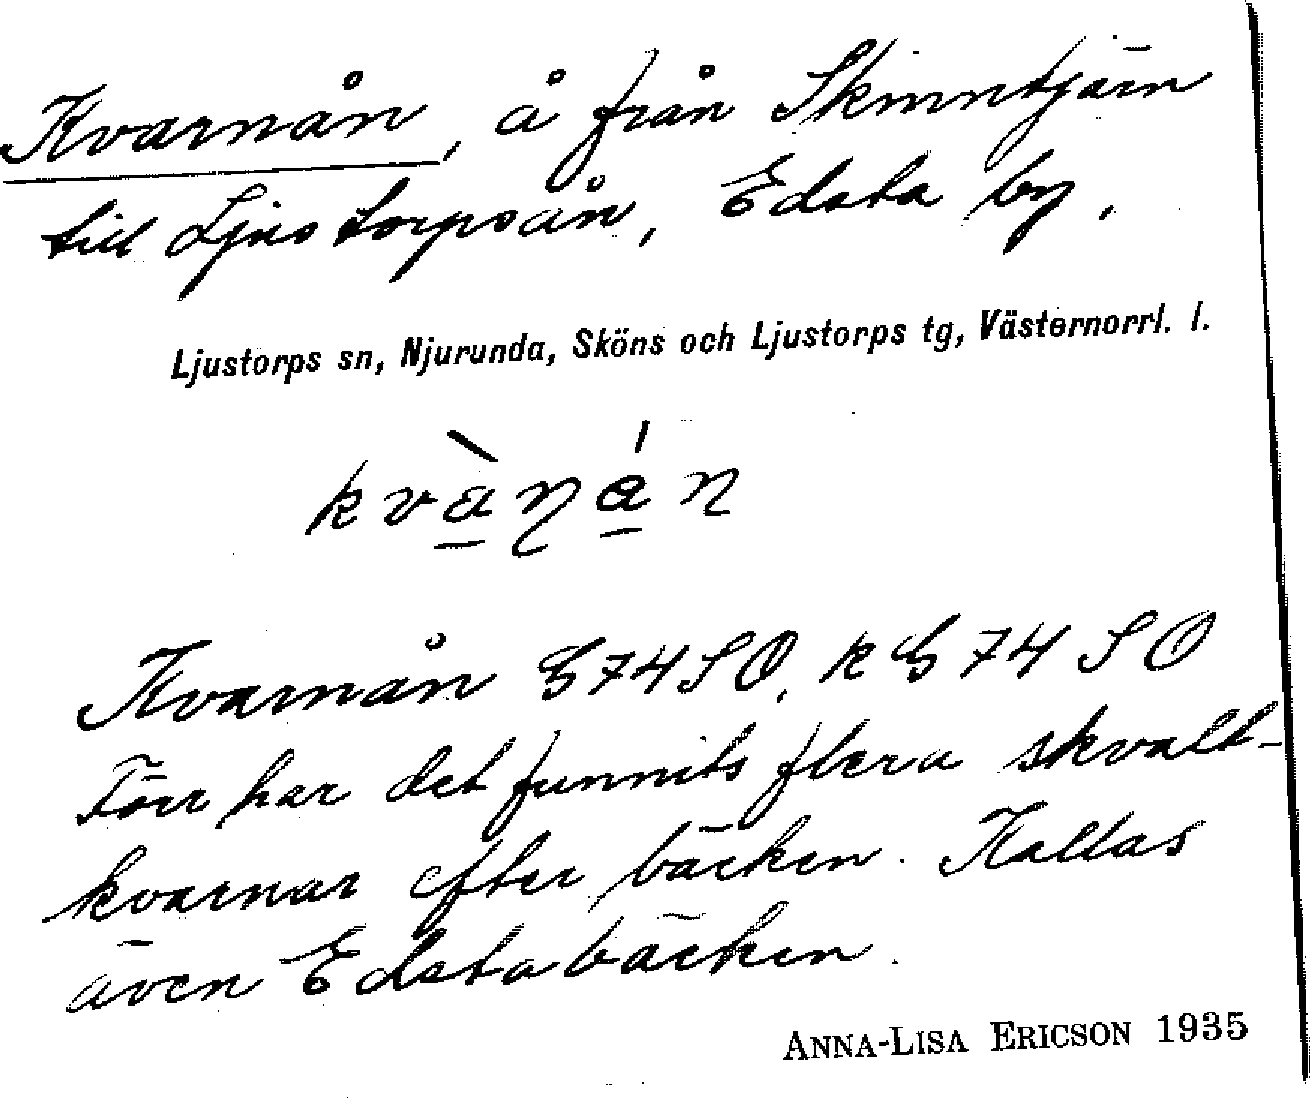 Kvarnån, å från Skinntjärn
till Ljustorpsån, Edsta by,
Ljustorps sn, Njurunda, Sköns och Ljustorps tg, Västernorrl. l.
kvàŋán
Kvarnån G74SO, k G74 SO
Förr har det funnits flera skvalt-
kvarnar efter bäcken. Kallas
även Edstabäcken.
ANNA-LISA ERICSON 1935